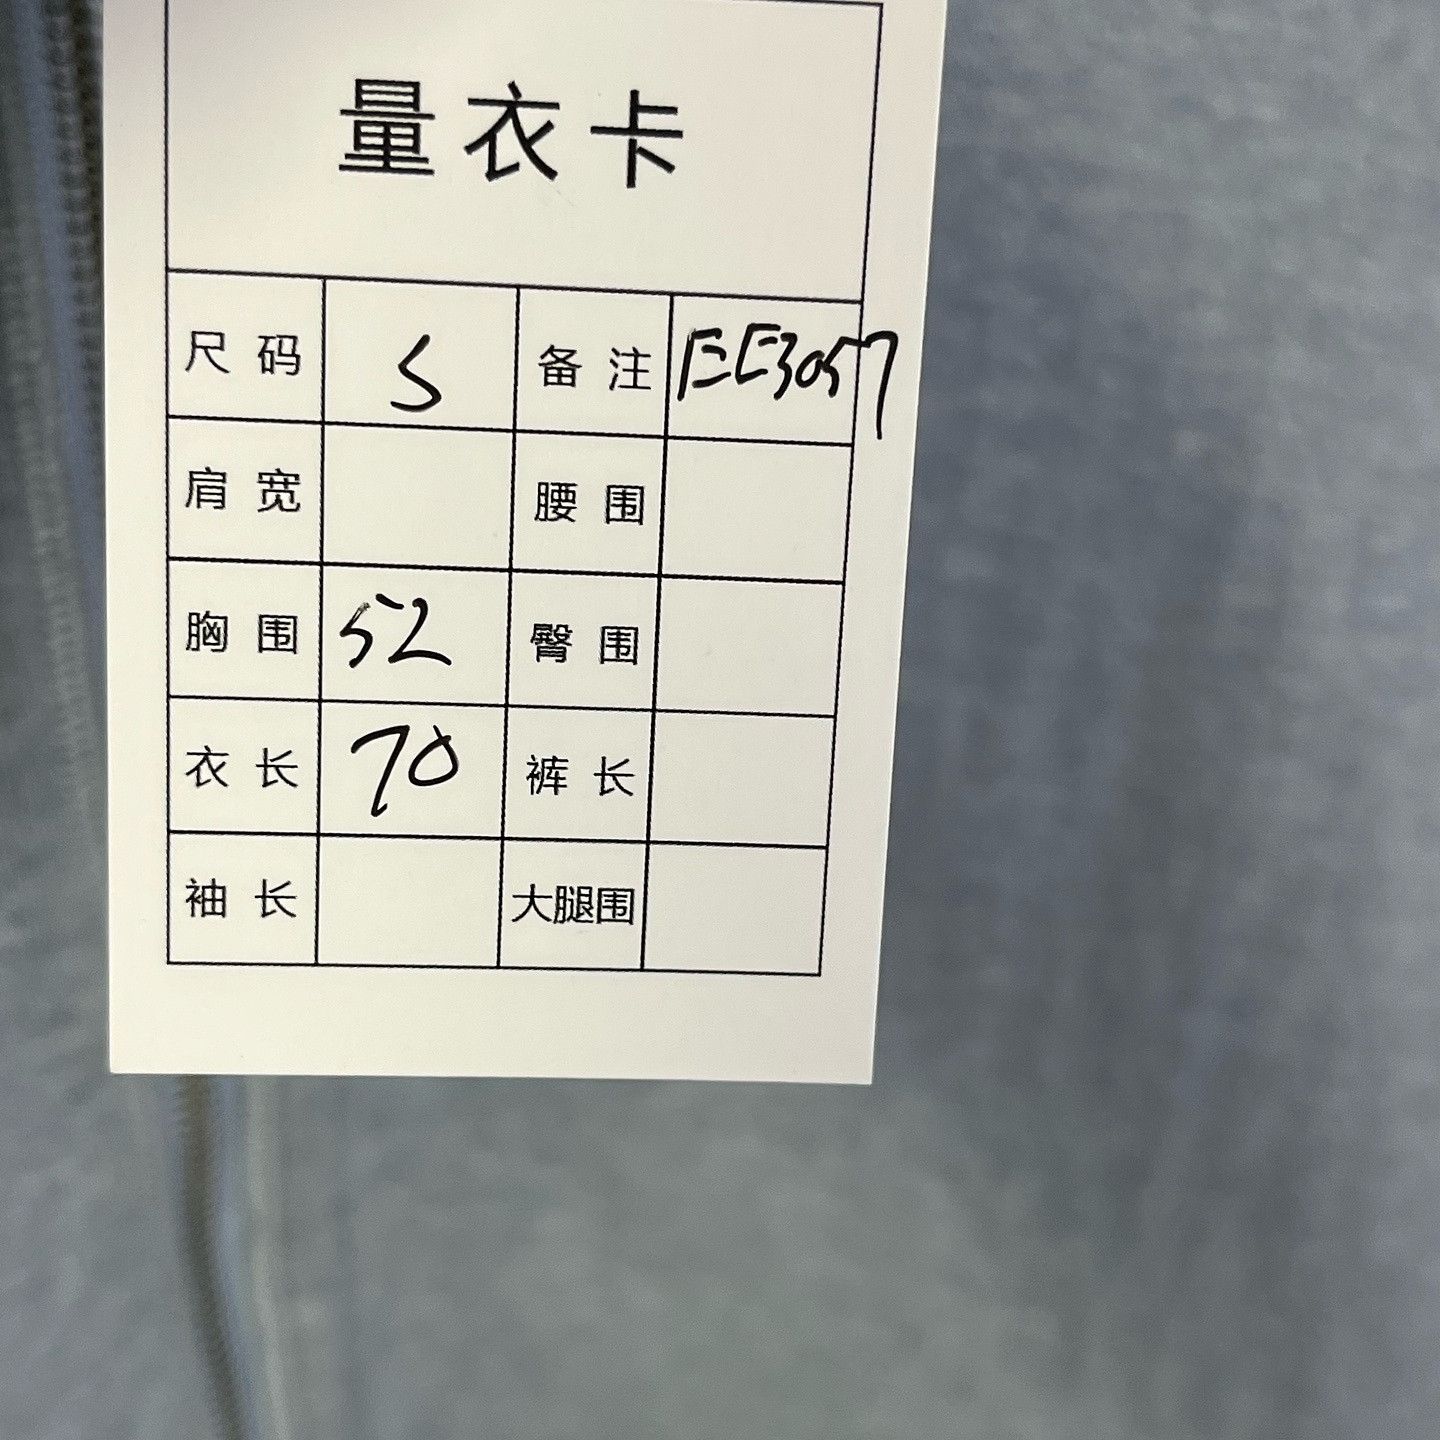 量衣卡
尺码 S 备注 EE3057
肩宽 腰围
胸围 52 臀围
衣长 70 裤长
袖长 大腿围